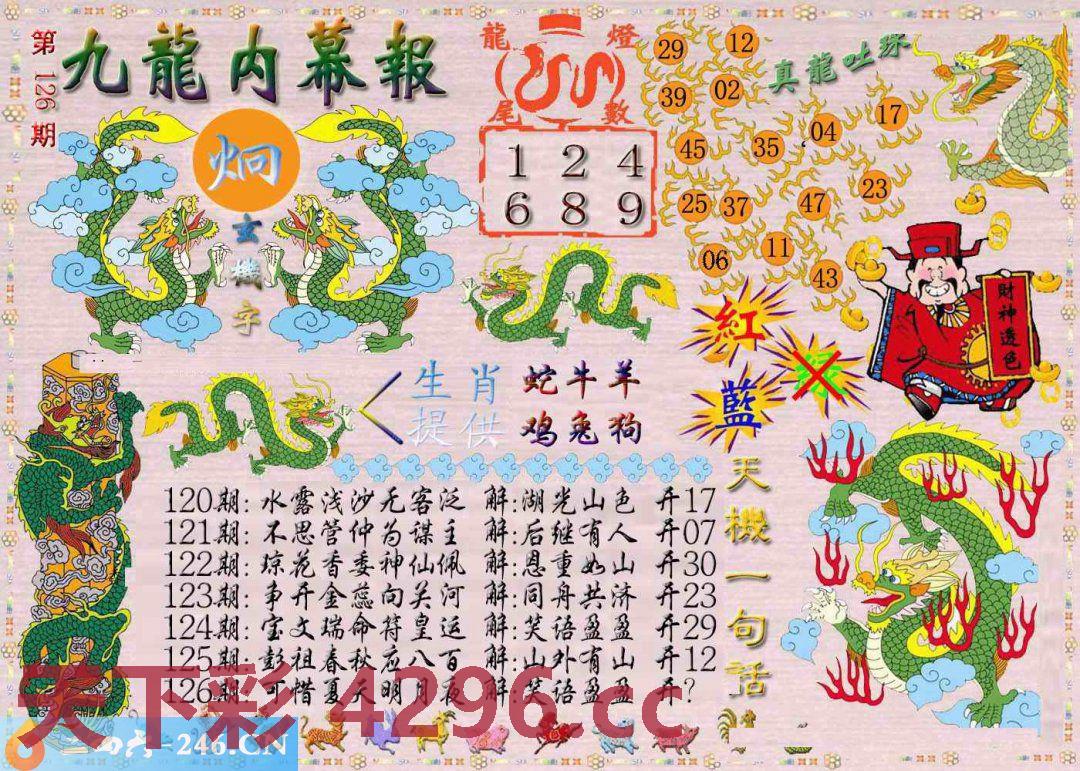 第126期
九龍内幕報
炯
玄機字
龍燈
尾數
1 2 4
6 8 9
真龍吐珠
29 12
39 02
17
04
45 35
25 37 47 23
06 11
43
紅
藍
绿
財神透色
生肖提供
蛇牛羊
鸡兔狗
天機一句話
120期:水露浅沙无客泛 解:湖光山色 开17
121期:不思管仲为谋主 解:后继有人 开07
122期:琼花香委神仙佩 解:恩重如山 开30
123期:事开金蕊向关河 解:同舟共济 开23
124期:宝文瑞命符皇运 解:笑语盈盈 开29
125期:彭祖春秋应八百 解:山外有山 开12
126期:可惜夏天明月夜 解:笑语盈盈 开?
天下彩 4296.cc
=246.CN